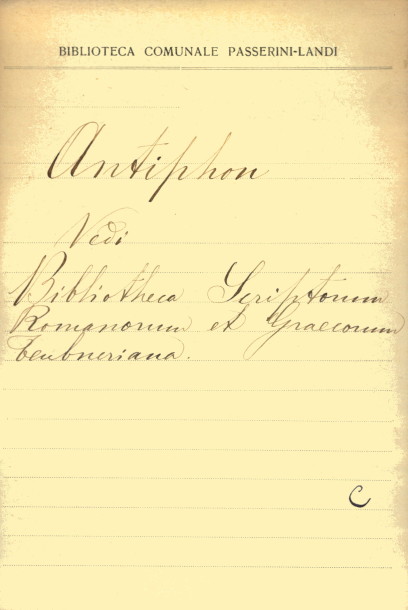 BIBLIOTECA COMUNALE PASSERINI-LANDI
Antiphon
Vedi
Bibliotheca Scriptorum
Romanorum et Graecorum
teubneriana.
C